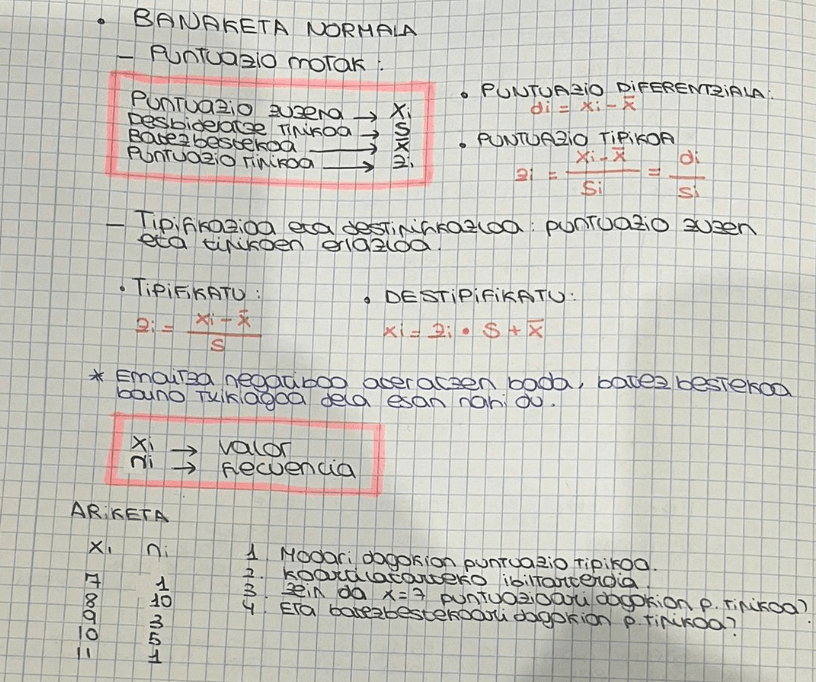 • BANAKETA NORMALA
– Puntuazio motak:
Puntuazio zuzena → Xi
Desbideratze tipikoa → S
Batezbestekoa → X̄
Puntuazio tipikoa → zi
• PUNTUAZIO DIFERENTZIALA:
di = xi - x̄
• PUNTUAZIO TIPIKOA
zi = xi - x̄ / si = di / si
– Tipifikazioa eta destipifikazioa: puntuazio zuzen
eta tipikoen erlazioa.
• TIPIFIKATU:
zi = xi - x̄ / s
• DESTIPIFIKATU:
xi = zi • S + x̄
* Emaitza negatiboa ateratzen bada, batezbestekoa
baino txikiagoa dela esan nahi du.
xi → valor
ni → frecuencia
ARIKETA
xi ni
7 1
8 10
9 3
10 5
11 1
1. Modari dagokion puntuazio tipikoa.
2. Koartilarteko ibiltartea
3. Zein da x=7 puntuazioari dagokion p. tipikoa?
4. Eta batezbestekoari dagokion p. tipikoa?